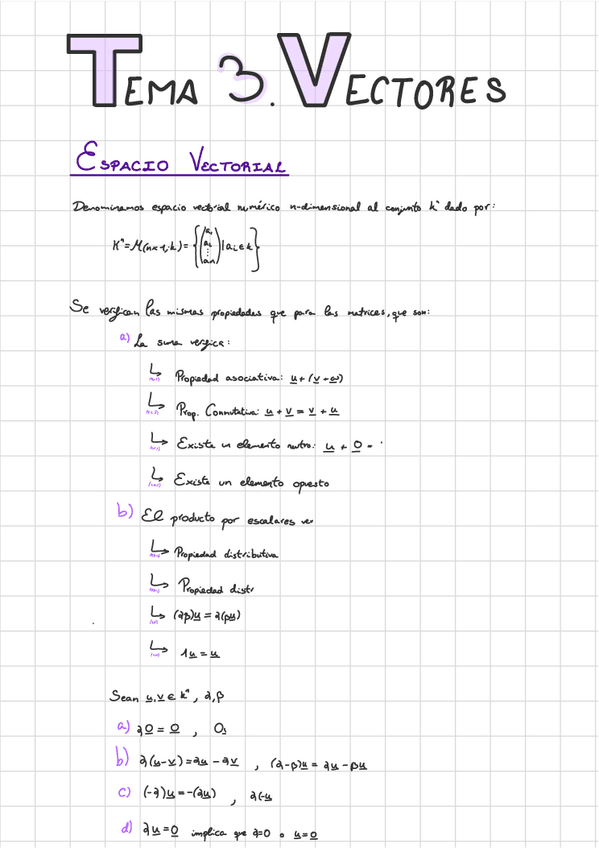 TEMA 3. VECTORES
ESPACIO VECTORIAL
Denominamos espacio vectorial numérico n-dimensional al conjunto kⁿ dado por:
Kⁿ = M(n×1,k) = {(a₁ a₂ ⋮ aₙ) | aᵢ ∈ k}
Se verifican las mismas propiedades que para las matrices, que son:
a) La suma verifica:
↳ Propiedad asociativa: u + (v + ω)
↳ Prop. Conmutativa: u + v = v + u
↳ Existe un elemento neutro: u + 0 =
↳ Existe un elemento opuesto
b) El producto por escalares ver
↳ Propiedad distributiva
↳ Propiedad distr
↳ (λβ)u = λ(βu)
↳ 1u = u
Sean u, v ∈ kⁿ, λ, β
a) λ0 = 0 , 0
b) λ(u-v) = λu - λv , (λ-β)u = λu - βu
c) (-λ)u = -(λu) , λ(-u
d) λu = 0 implica que λ=0 o u=0